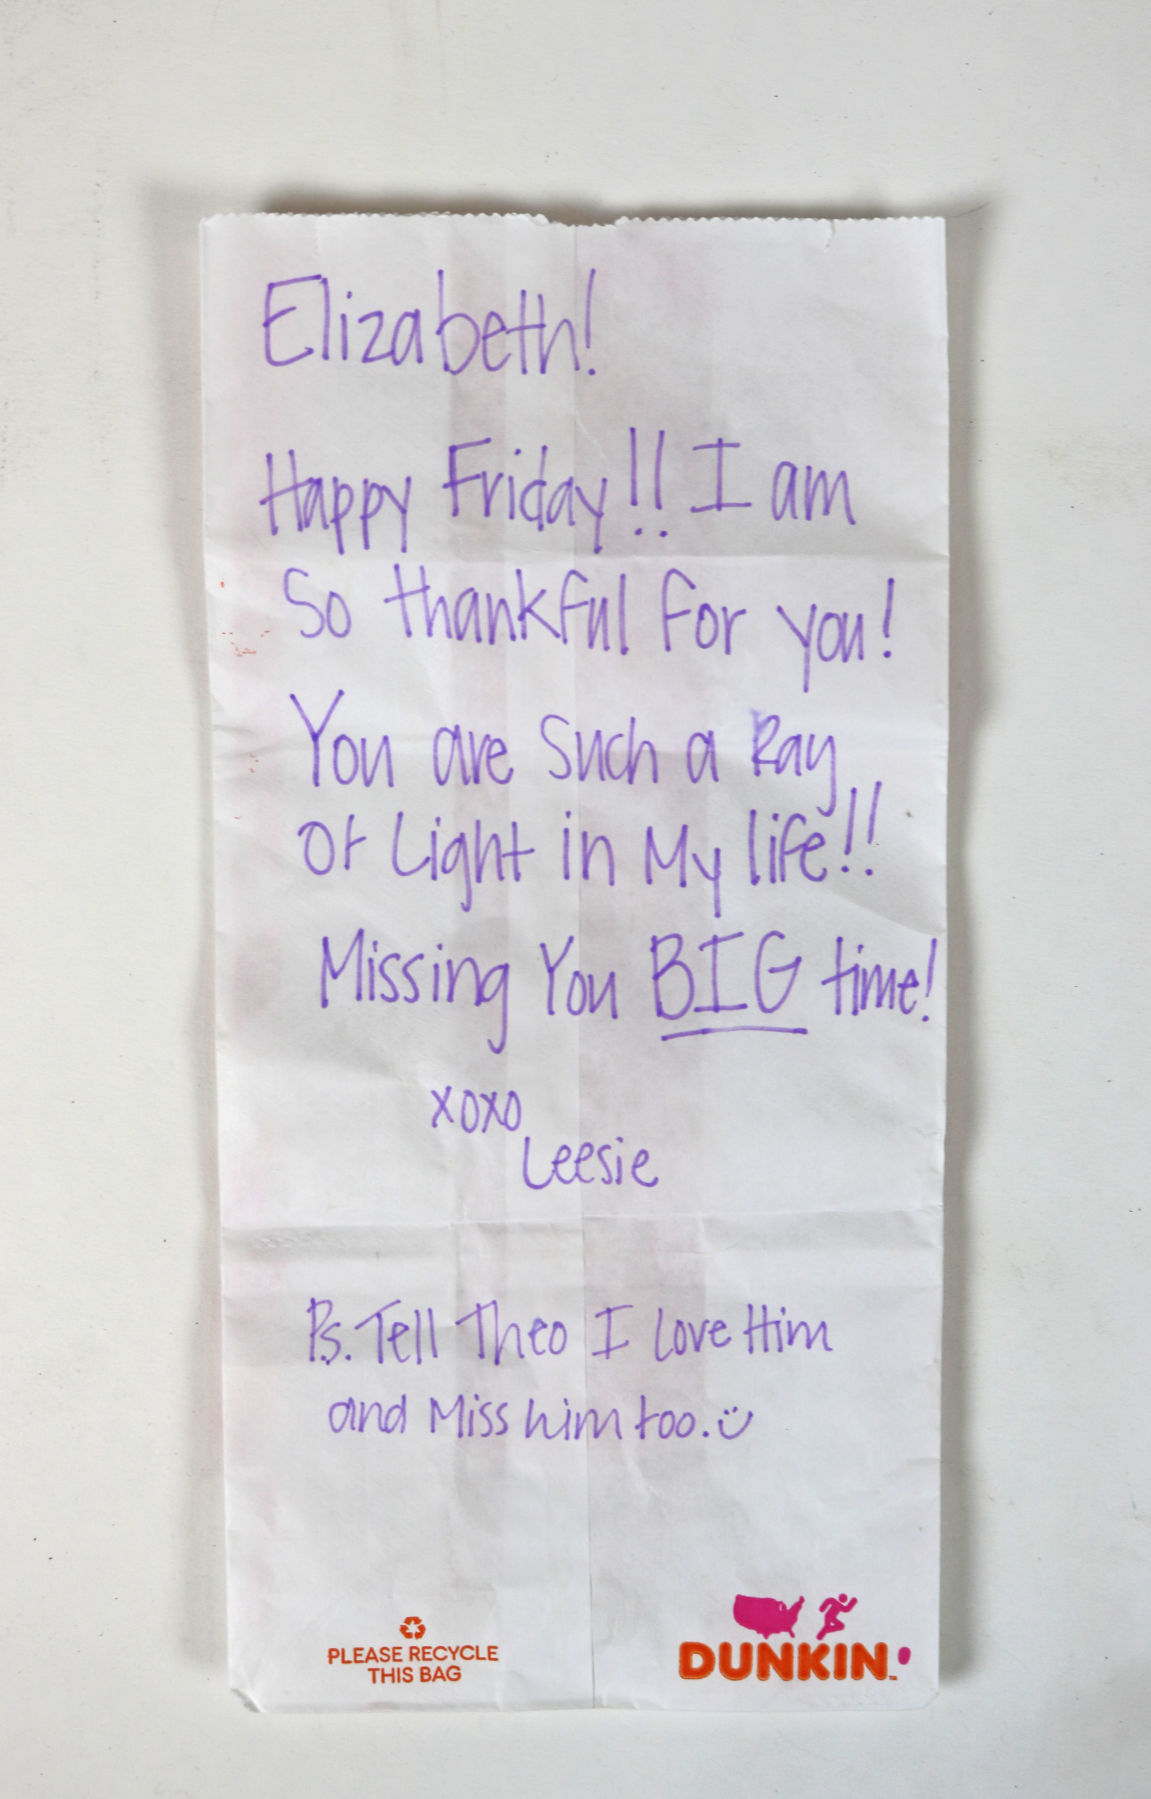 Elizabeth!
Happy Friday!! I am
So thankful for you!
You are Such a Ray
Of Light in My life!!
Missing You BIG time!
xoxo
Leesie
P.s. Tell Theo I Love Him
and Miss him too. :)
PLEASE RECYCLE
THIS BAG
DUNKIN'™